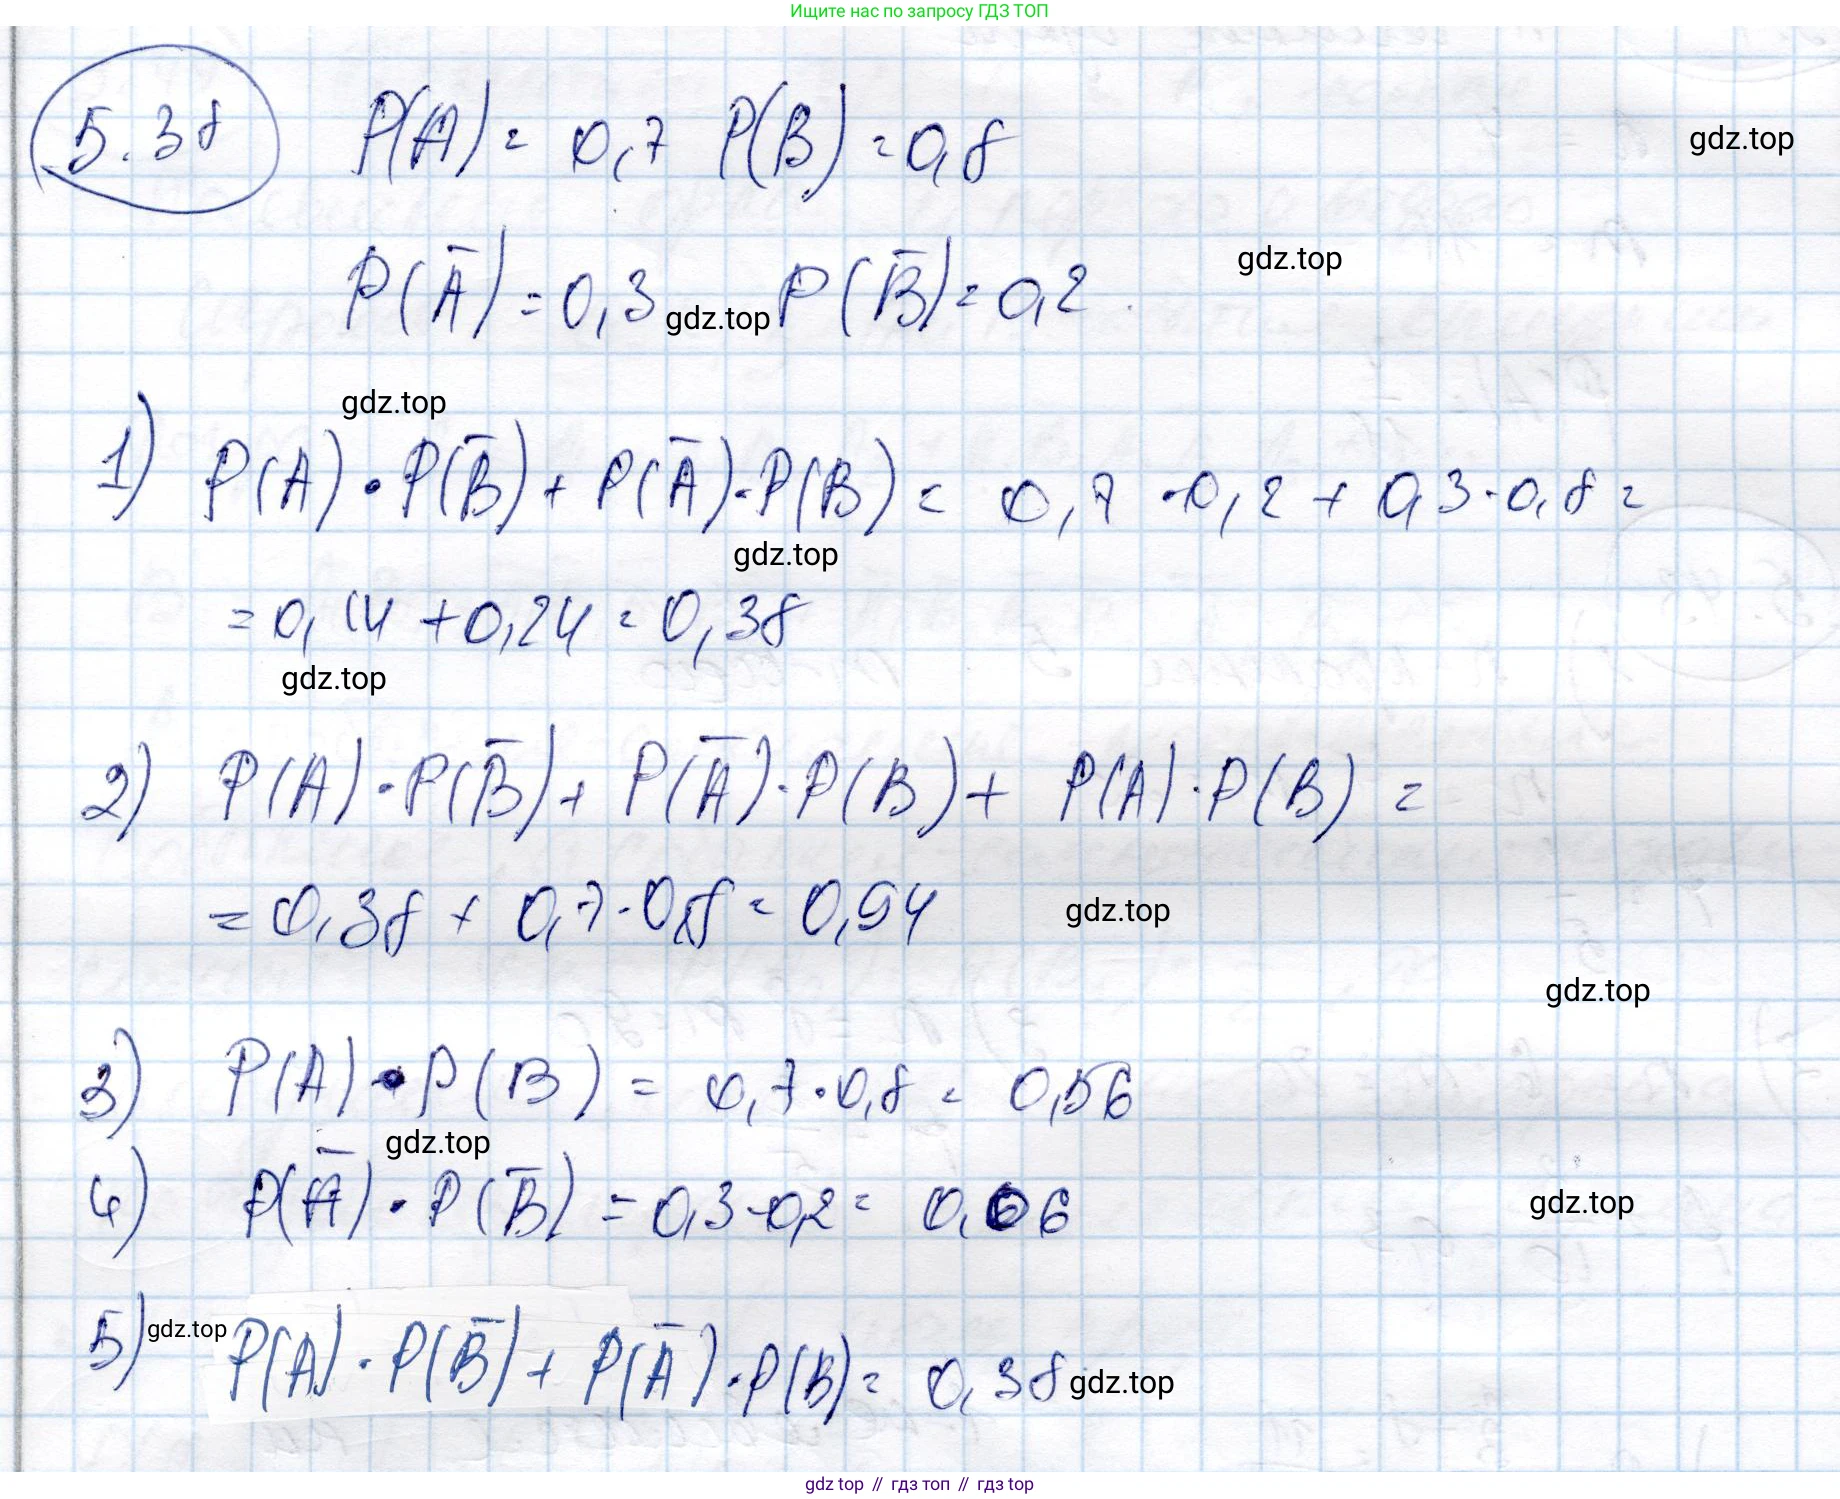 Ищите нас по запросу ГДЗ ТОП
5.38 P(A) = 0,7 P(B) = 0,8
gdz.top
P(A̅) = 0,3 P(B̅) = 0,2
gdz.top
gdz.top
gdz.top
1) P(A) · P(B̅) + P(A̅) · P(B) = 0,7 · 0,2 + 0,3 · 0,8 =
gdz.top
= 0,14 + 0,24 = 0,38
gdz.top
2) P(A) · P(B̅) + P(A̅) · P(B) + P(A) · P(B) =
= 0,38 + 0,7 · 0,8 = 0,94
gdz.top
gdz.top
3) P(A) · P(B) = 0,7 · 0,8 = 0,56
gdz.top
4) P(A̅) · P(B̅) = 0,3 · 0,2 = 0,06
gdz.top
5) P(A) · P(B̅) + P(A̅) · P(B) = 0,38
gdz.top
gdz.top
gdz top // гдз топ // гдз top